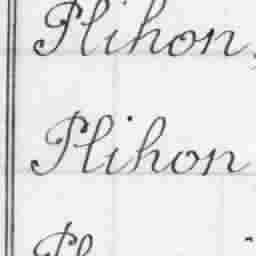 Plihon,
Plihon